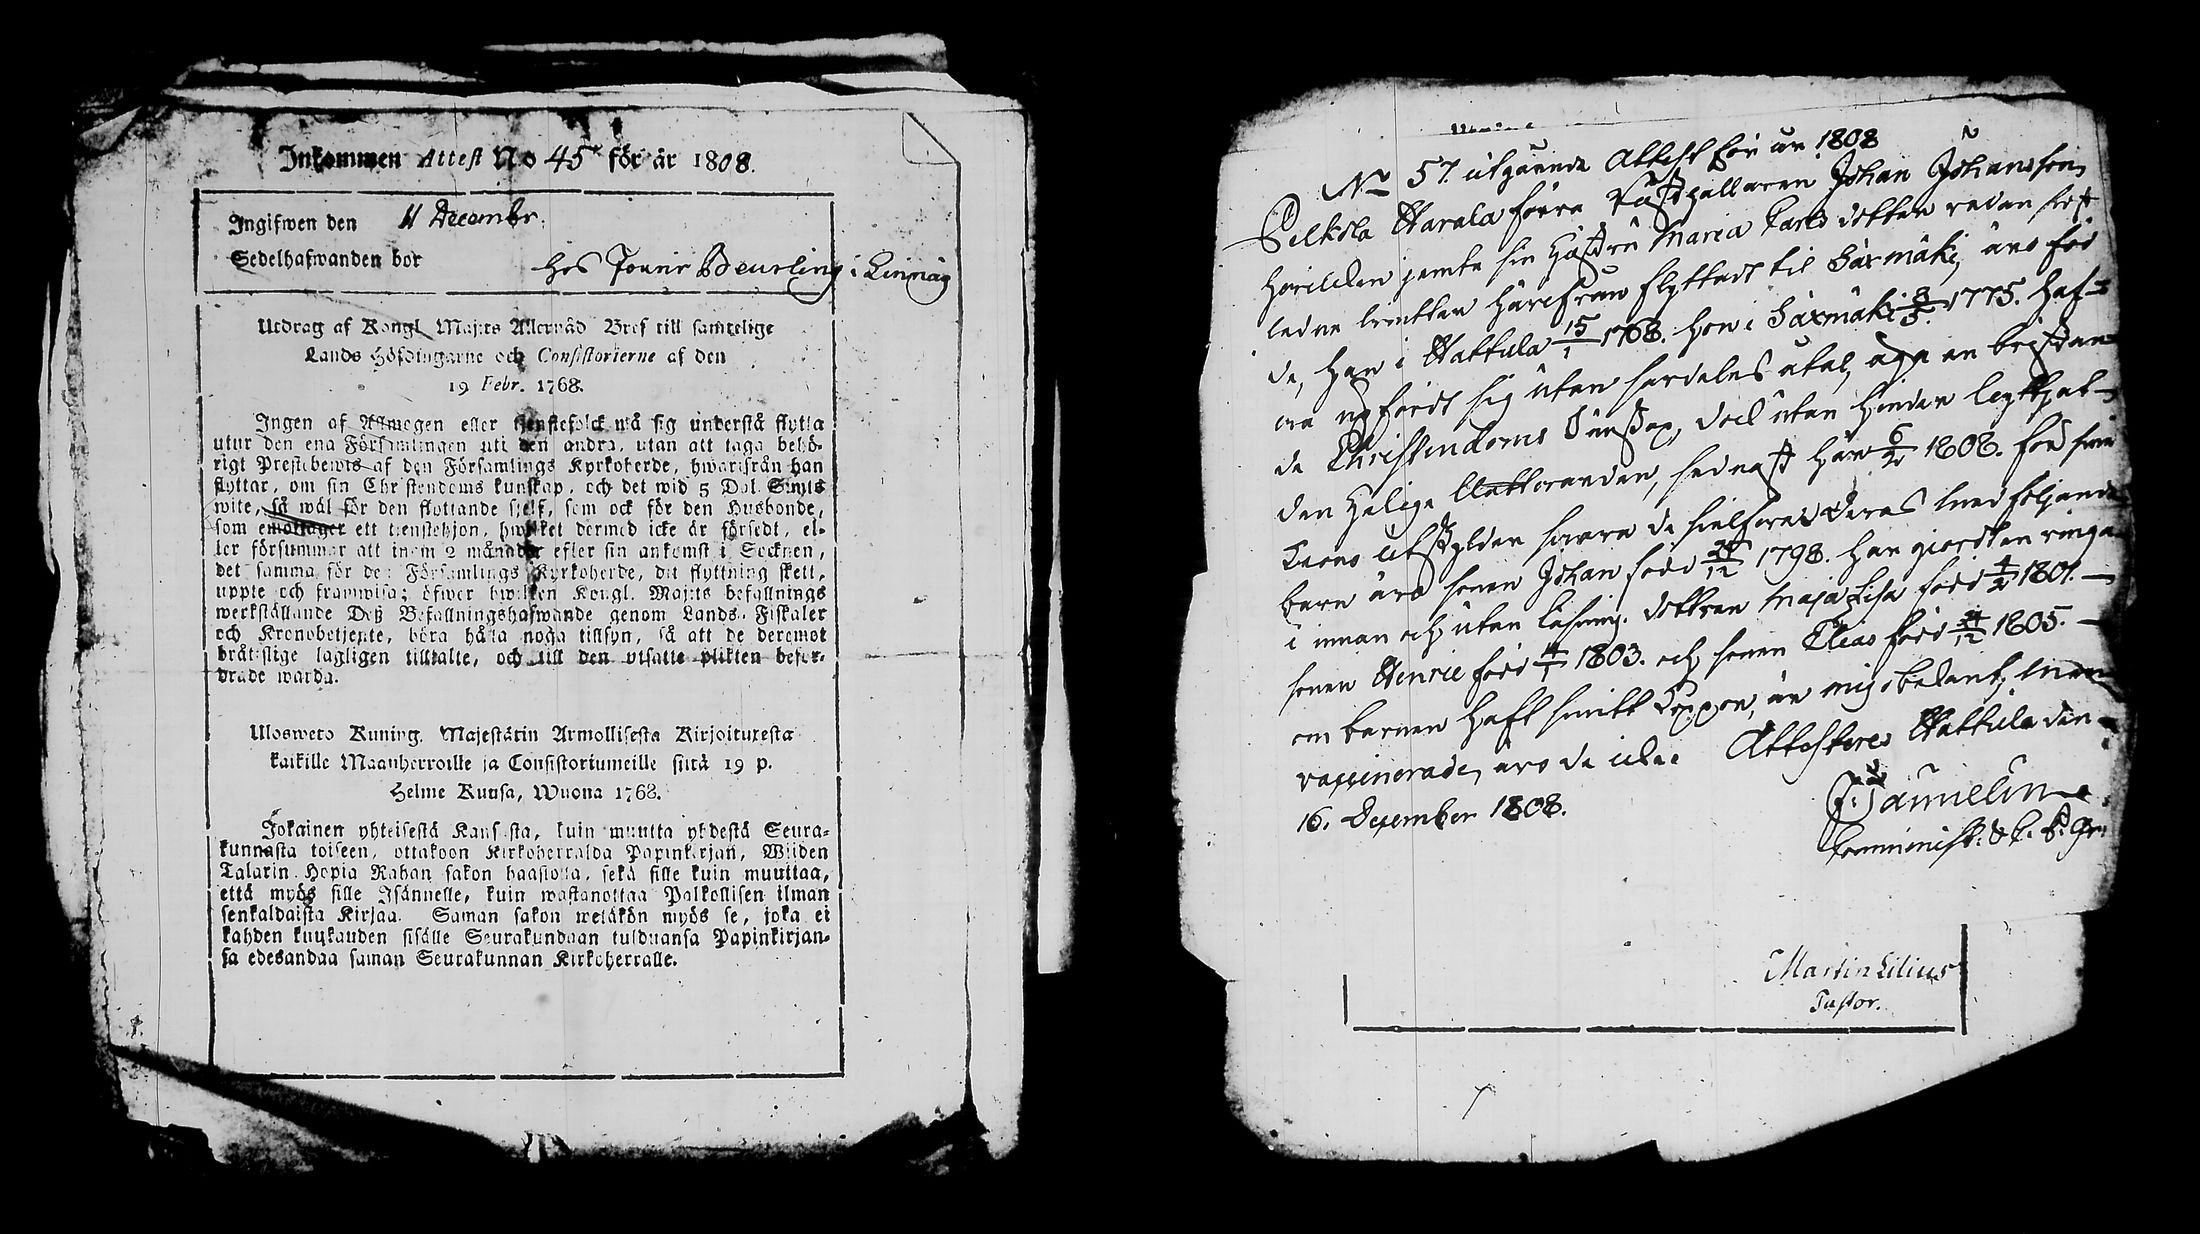 Inkommen Attest No 45 för år 1808.
Ingifwen den 11 Decembr.
Sedelhafwanden bor
hos Beurling i
Utdrag af Kongl. Maj:ts Allernåd Bref till samtelige
Lands Höfdingarne och Consistorierne af den
19 Febr. 1768.
Ingen af Allmogen eller tjenstefolck må sig understå flytta
utur den ena Församlingen uti den andra, utan att taga behö-
rigt Prestebewis af den Församlings Kyrkoherde, hwarifrån han
flyttar, om sin Christendoms kunskap, och det wid 5 Dal. S:mts
wite, så wäl för den flyttande sjelf, som ock för den Husbonde,
som emottager ett tienstehjon, hwilket dermed icke är försedt, el-
ler försummar att inom 2 månader efter sin ankomst i Socknen,
det samma för den Församlings Kyrkoherde, dit flyttning skett,
uppte och framwisa; öfwer hwilken Kongl. Maj:ts befallnings
werkställande Deß Befallningshafwande genom Lands-Fiskaler
och Kronobetjente, böra hålla noga tillsyn, så att de deremot
bråtslige lagligen tilltalte, och till den utsatte plikten befor-
drade warda.
Ulosweto Kuning. Majestätin Armollisesta Kirjoituxesta
kaikille Maanherroille ja Consistoriumeille siitä 19 p.
Helme Kuusa, Wuona 1768.
Jokainen yhteisestä Kansasta, kuin muutta yhdestä Seura-
kunnasta toiseen, ottakoon Kirkoherralda Papinkirjan, Wiiden
Talarin Hopia Rahan sakon haastolla, sekä sille kuin muuttaa,
että myös sille Isännelle, kuin wastanottaa Palkollisen ilman
senkaldaista Kirjaa. Saman sakon wetäkön myös se, joka ei
kahden kuukauden sisälle Seurakundaan tulduansa Papinkirjan-
sa edesandaa saman Seurakunnan Kirkoherralle.
No 57. utgående Attest för år 1808
Pelkola Harala förra Rusthållaren Johan Johansson,
jemte sin hustru Maria Carls dotter redan sist
härifrån flyttadt til Säxmäki, äro föd
de, han i Hattula 15/1 1768. hon i Säxmäki 8/5 1775. Haf-
wa upfördt sig utan särdeles åtal, äga en
de Christendoms Kunskap, och utan hinder
den Helige Nattvarden, sednast här 6/2 1808. för sine
Krono utskylder svara de sielfve. Deras medföljande
barn äro sonen Johan född 12 1798. har giordt en ringa
i innan och utan läsning. dottren Maja Lisa född 4/2 1801. —
sonen Henric född 1 1803. och sonen Elias född 12 1805. —
om barnen haft smitt Koppor, är mig obekant, men
vaccinerade, äro de icke. Attesteres Hattula den
16. December 1808.
Martin Lilius
Pastor.